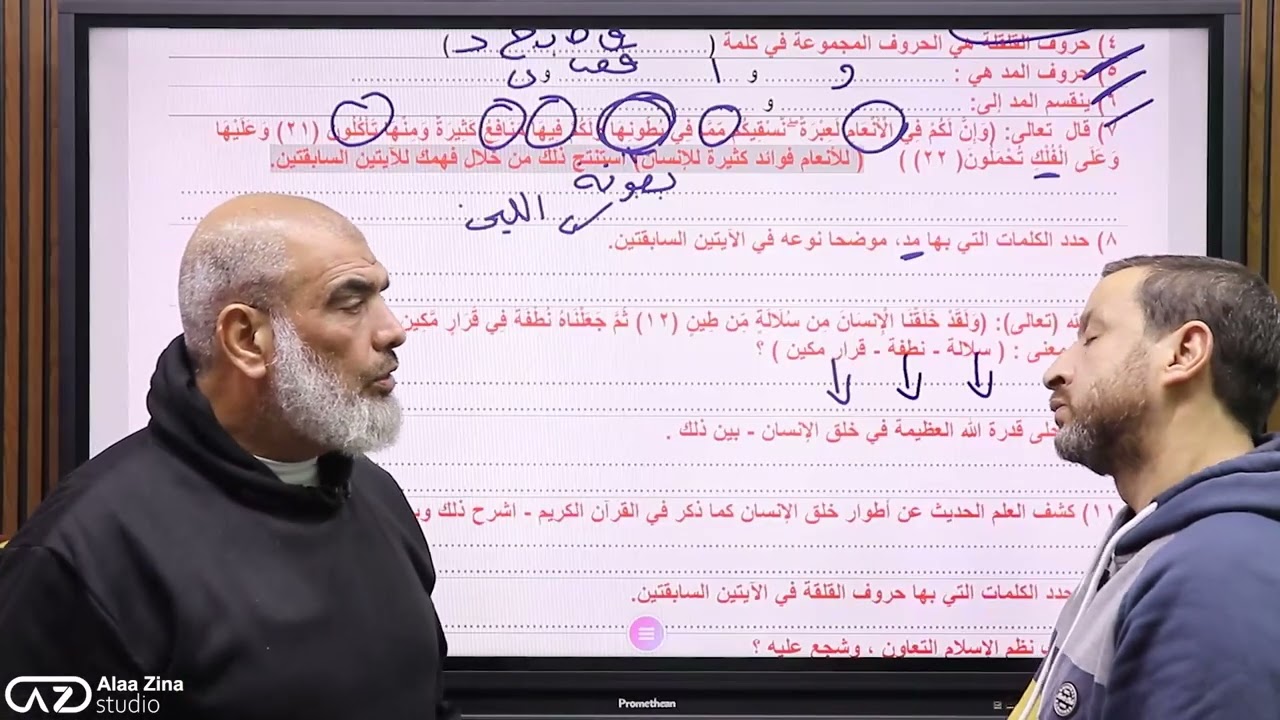 ق ط ب ج د
٤) حروف القلقلة هي الحروف المجموعة في كلمة (
٥) حروف المد هي : و و ا و
٦) ينقسم المد إلى: و
٧) قال تعالى: (وَإِنَّ لَكُمْ فِي الْأَنْعَامِ لَعِبْرَةً ۖ نُسْقِيكُم مِّمَّا فِي بُطُونِهَا وَلَكُمْ فِيهَا مَنَافِعُ كَثِيرَةٌ وَمِنْهَا تَأْكُلُونَ (٢١) وَعَلَيْهَا
وَعَلَى الْفُلْكِ تُحْمَلُونَ( ٢٢)) ( للأنعام فوائد كثيرة للإنسان) استنتج ذلك من خلال فهمك للآيتين السابقتين.
٨) حدد الكلمات التي بها مد، موضحا نوعه في الآيتين السابقتين.
الله (تعالى): (وَلَقَدْ خَلَقْنَا الْإِنسَانَ مِن سُلَالَةٍ مِّن طِينٍ (١٢) ثُمَّ جَعَلْنَاهُ نُطْفَةً فِي قَرَارٍ مَّكِينٍ
معنى : ( سلالة - نطفة - قرار مكين ) ؟
قدرة الله العظيمة في خلق الإنسان - بين ذلك .
١١) كشف العلم الحديث عن أطوار خلق الإنسان كما ذكر في القرآن الكريم - اشرح ذلك
حدد الكلمات التي بها حروف القلقة في الآيتين السابقتين.
نظم الإسلام التعاون ، وشجع عليه ؟
Promethean
Alaa Zina
studio